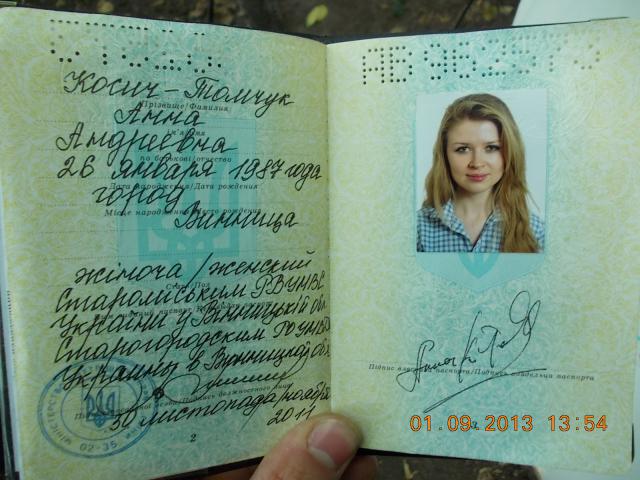 Косич-Томчук
Прізвище/Фамилия
Анна
Ім'я/Имя
Андреевна
по батькові/отчество
26 января 1987 года
Дата народження/Дата рождения
город
Місце народження/Место рождения
Винница
жіноча/женский
Стать/Пол
Староміським РВ УМВС
України у Вінницькій обл
Старогородским РО УМВД
Украины в Винницкой обл
30 листопада/ноября
2011
02-35
2
Підпис власника паспорта/Подпись владельца паспорта
01.09.2013 13:54